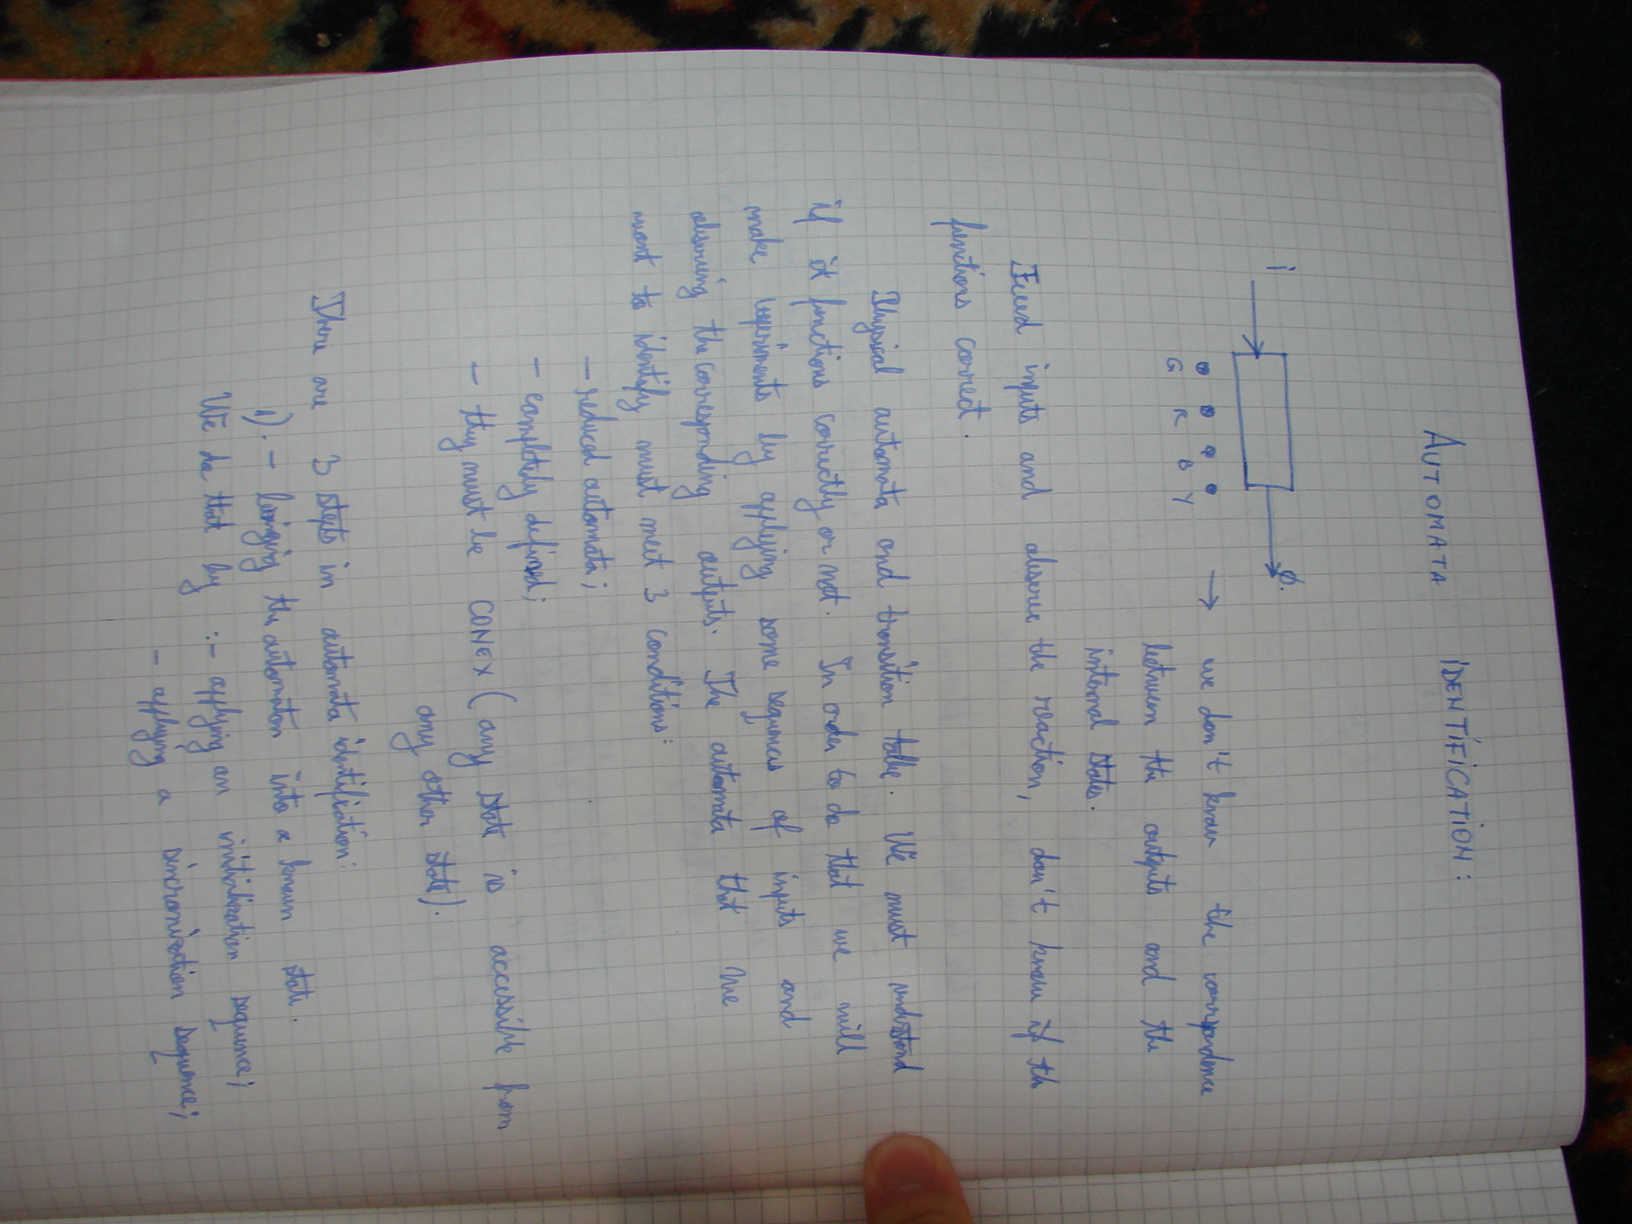 AUTOMATA IDENTIFICATION:
i
O.
G R B Y
→ we don't know the correspondence
between the outputs and the
internal states.
Feed inputs and observe the reaction, don't know if th
functions correct.
Physical automata and transition table. We must understand
if it functions correctly or not. In order to do that we will
make experiments by applying some sequences of inputs and
observing the corresponding outputs. The automata that we
want to identify must meet 3 conditions:
- reduced automata;
- completely defined;
- they must be CONEX (any state is accessible from
any other state).
There are 3 steps in automata identification:
1). - bringing the automaton into a known state.
We do that by :- applying an initialization sequence;
- applying a sincronization sequence;